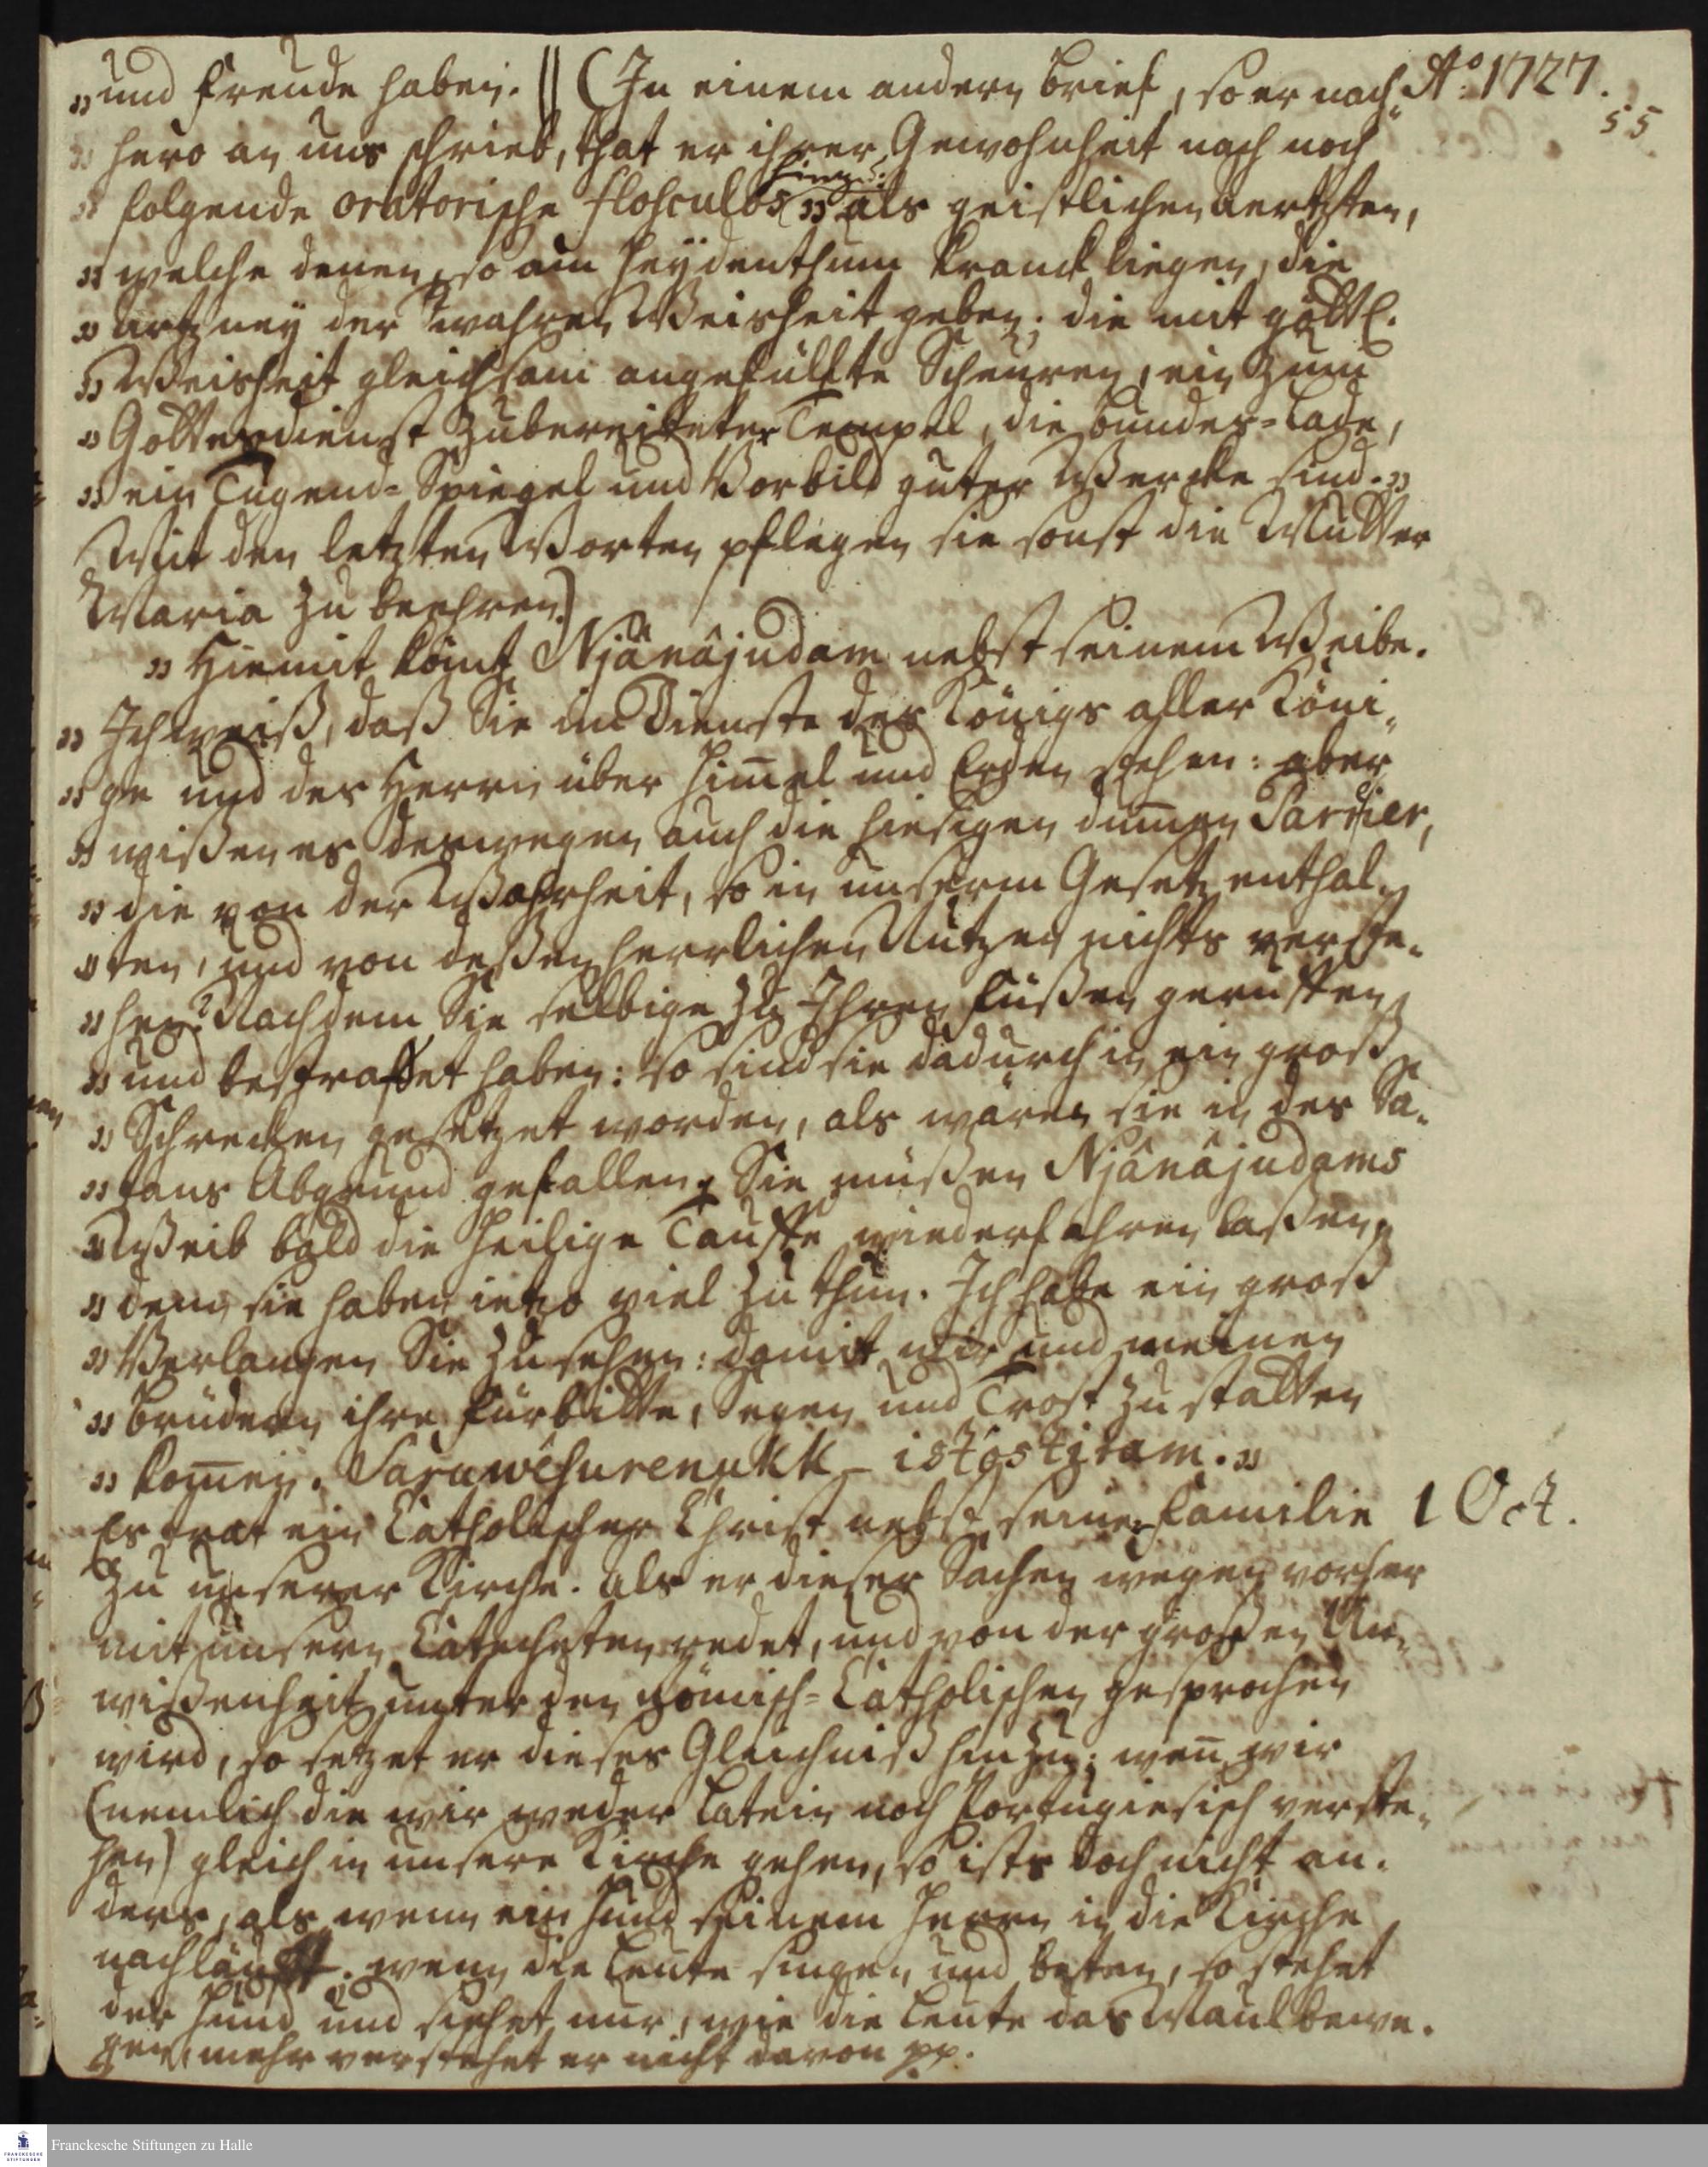 „und Freude haben. || (In einem andern Brief, so er nach„ Aº: 1727.
55
„hero an uns schrieb, that er ihrer Gewohnheit nach noch
hinzu:
„folgende oratorische flosculos „als geistlichen aertzten,
„welche denen, so am Heydenthum kranck liegen, die
„artzney der wahren Weisheit geben; die mit göttl.
„Weisheit gleichsam angefüllte Scheuren, ein zum
„Gottesdienst zubereiteter Tempel, die bundes-Lade,
„ein Tugend-Spiegel und Vorbild guter Wercke sind.„
Mit den letzten Worten pflegen sie sonst die Mutter
Maria zu beehren)
„Hiemit kömt Njânâjudam nebst seinem Weibe.
„Ich weiß, daß Sie im Dienste des Königs aller Köni„
„ge und des Herrn über Himel und Erden stehen: aber
„wißen es deswegen auch die hiesigen dumen Parrier,
„die von der Wahrheit, so in unserm Gesetz enthal„
„ten, und von deßen herrlichen Nutzen nichts verste„
„hen? Nachdem Sie selbige zu Ihren Füßen geruffen
„und bestraffet haben: so sind sie dadurch in ein groß
„Schrecken gesetzet worden, als wären sie in des Sa„
„tans Abgrund gefallen. Sie müßen Njânâjudams
„Weib bald die heilige Tauffe wiederfahren laßen,
„denn sie haben ietzo viel zu thun. Ich habe ein groß
„Verlangen Sie zu sehen: damit mir und meinen
„Brüdern ihre Fürbitte, Segen und Trost zu statten
„komen. Saruwêsurenukk-istôstiram.„
Es trat ein Catholischer Christ nebst seiner Familie 1 Oct.
zu unserer Kirche. Als er dieser Sachen wegen vorher
mit unsern Catecheten redet, und von der großen Un„
wißenheit unter den Römisch-Catholischen gesprochen
wird, so setzet er dieses Gleichniß hinzu: wen wir
(nemlich die wir weder Latein noch Portugiesisch verste„
hen) gleich in unsere Kirche gehen, so ists doch nicht an„
ders, als wenn ein Hund seinem Herrn in die Kirche
nachläufft. wenn die Leute singen und beten, so stehet
der Hund und siehet nur, wie die Leute das Maul bewe„
gen, mehr verstehet er nicht davon pp.
Franckesche Stiftungen zu Halle